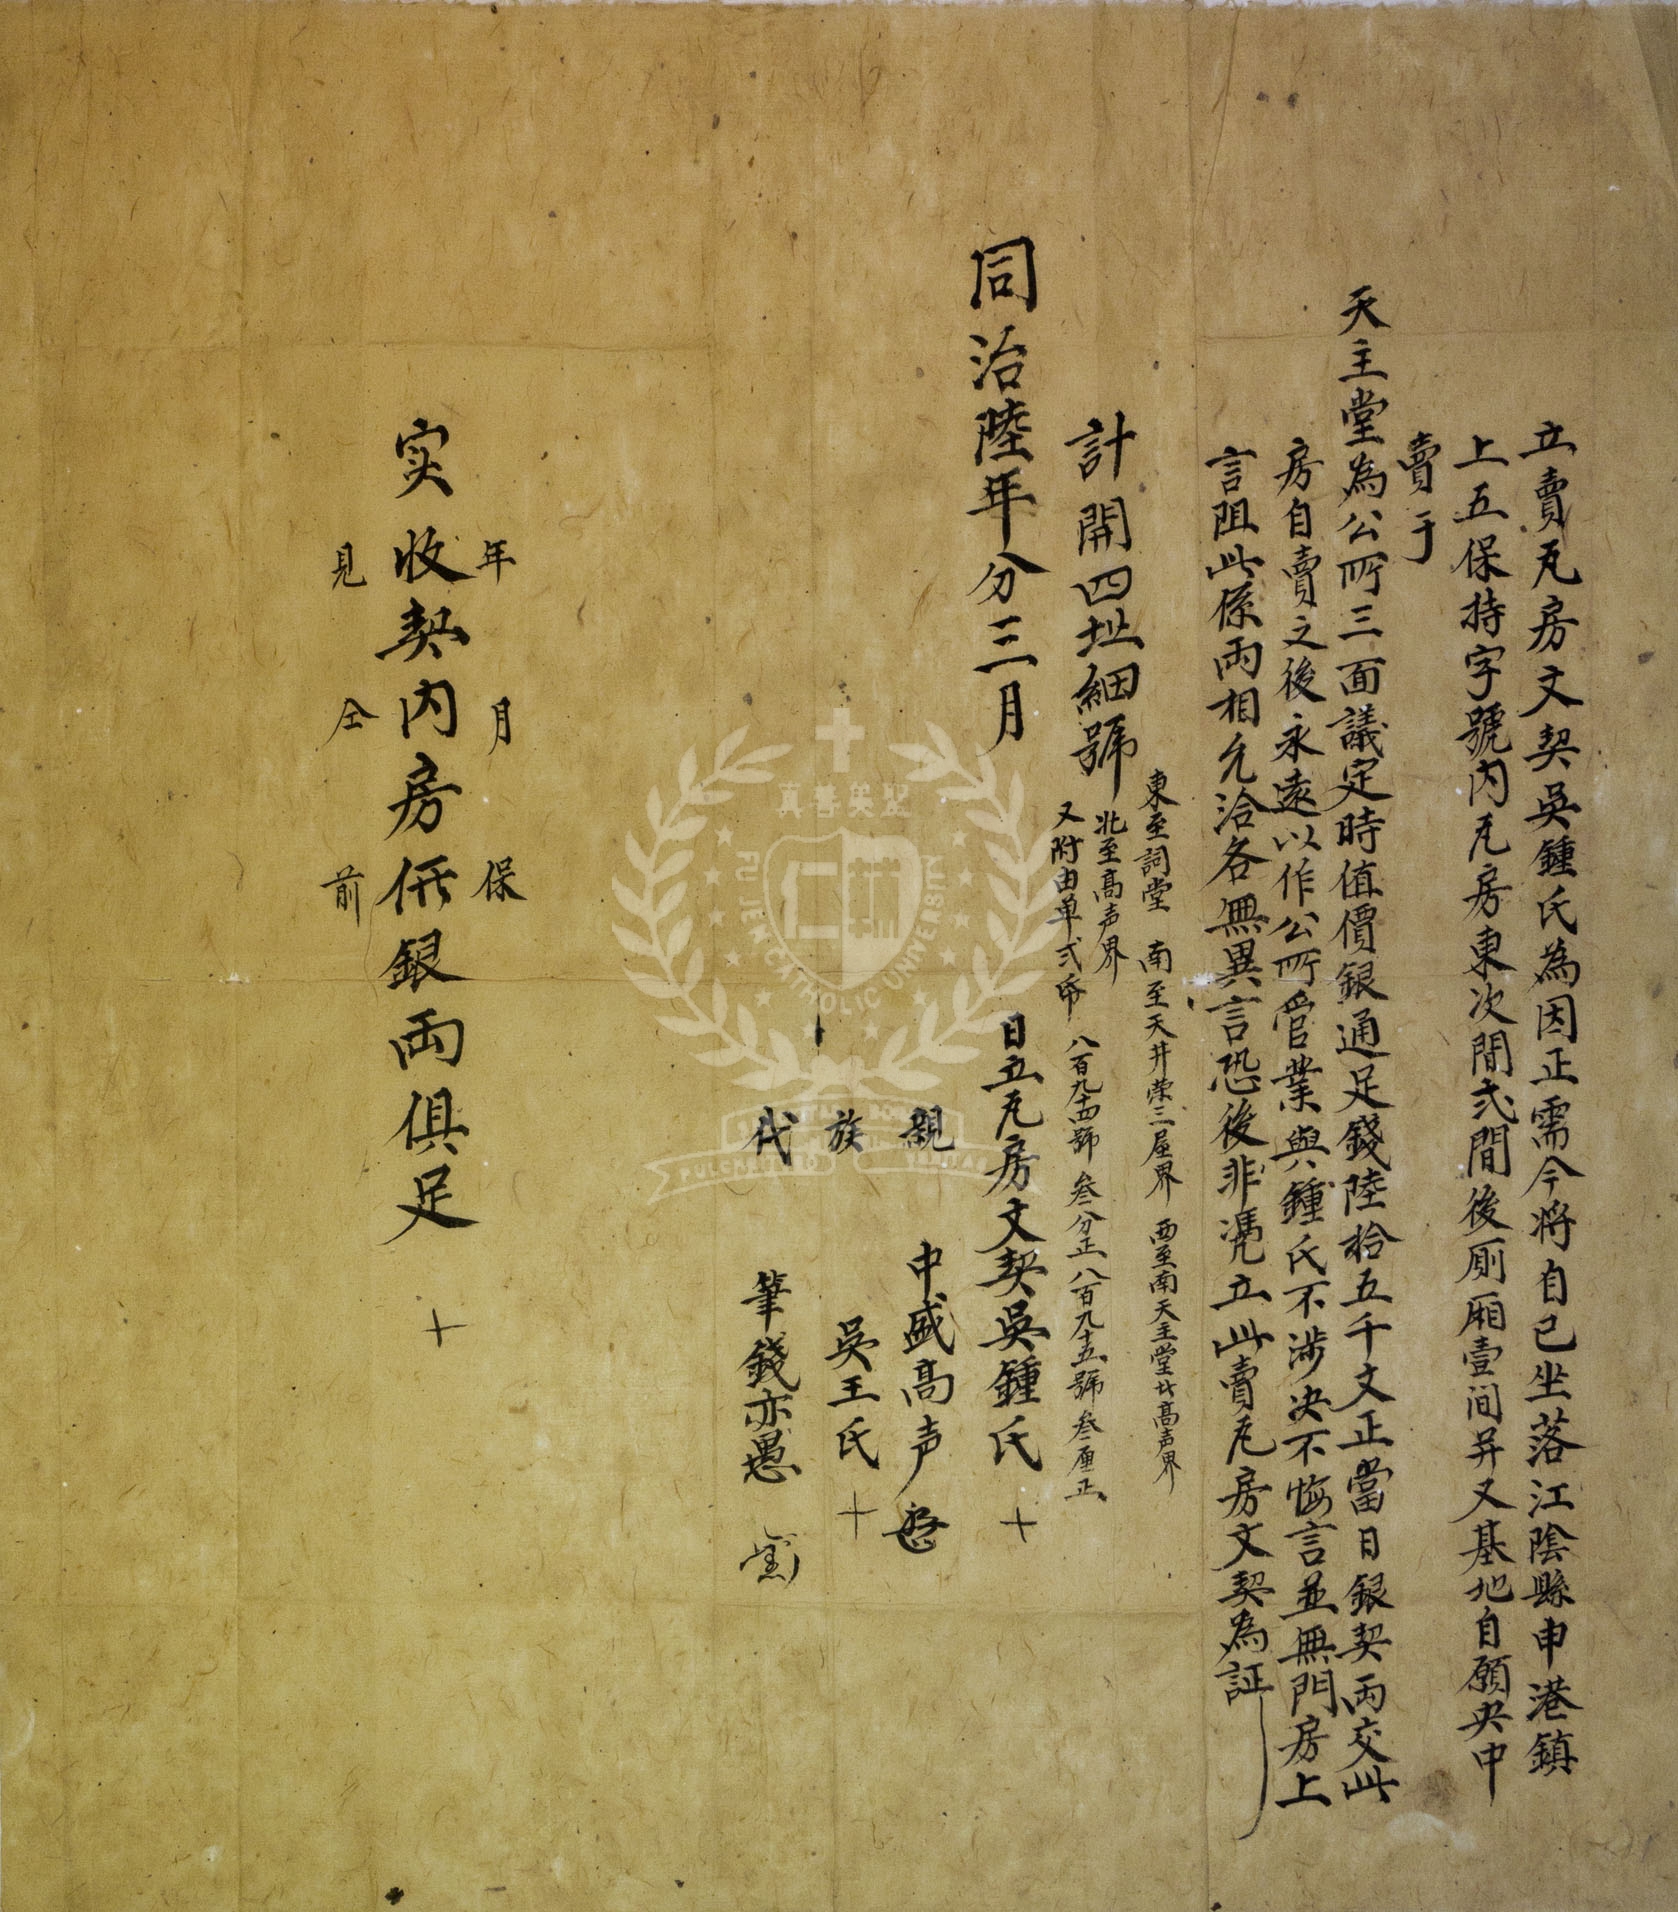 立賣瓦房文契吳鍾氏為因正需今將自己坐落江陰縣申港鎮
上五保持字號內瓦房東次間弍間後廂壹间并又基地自願央中
賣于
天主堂為公所三面議定時值價銀通足錢陸拾五千文正當日銀契両交此
房自賣之後永遠以作公所管業與鍾氏不涉决不悔言並無門房上
言阻此係両相允洽各無異言恐後非憑立此賣瓦房文契為証
計開四址細號
東至祠堂 南至天井荣三屋界 西至南天主堂廿高声界
北至高声界
又附由单弍帋 八百九十四號 叁分正 八百九十五號 叁厘正
同治陸年分三月 日立瓦房文契吳鍾氏 十
親 中盛高声
族 吳王氏 十
代 筆錢亦愚
年 月 保
实收契内房価銀両俱足 十
見 仝 前
真善美聖
FU JEN CATHOLIC UNIVERSITY